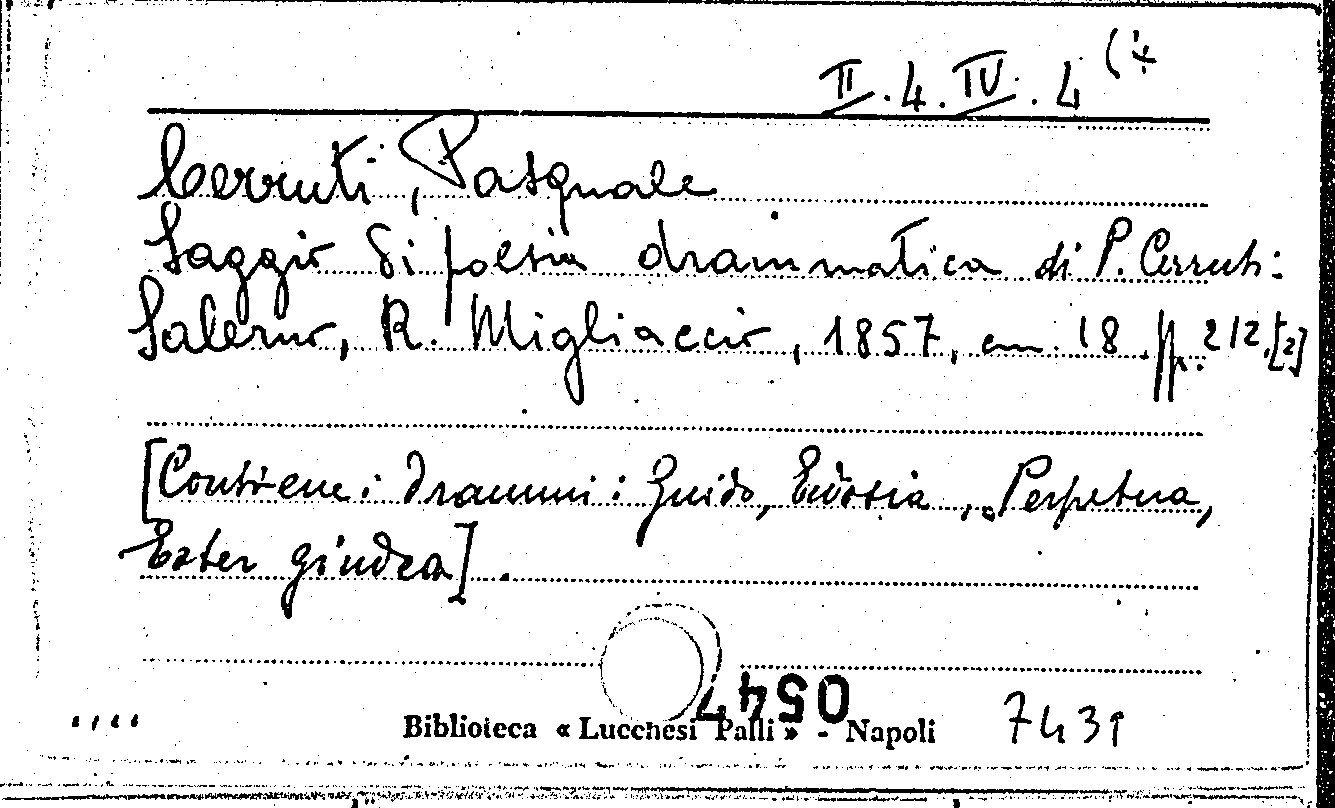 II.4.IV.4 (*
Cerruti, Pasquale
Saggio di poesia drammatica di P. Cerruti:
Salerno, R. Migliaccio, 1857, in 18 pp. 212,[2]
[Contiene i drammi: Guido, Eudosia, Perpetua,
Ester giudea].
0547
Biblioteca « Lucchesi Palli » - Napoli 7431